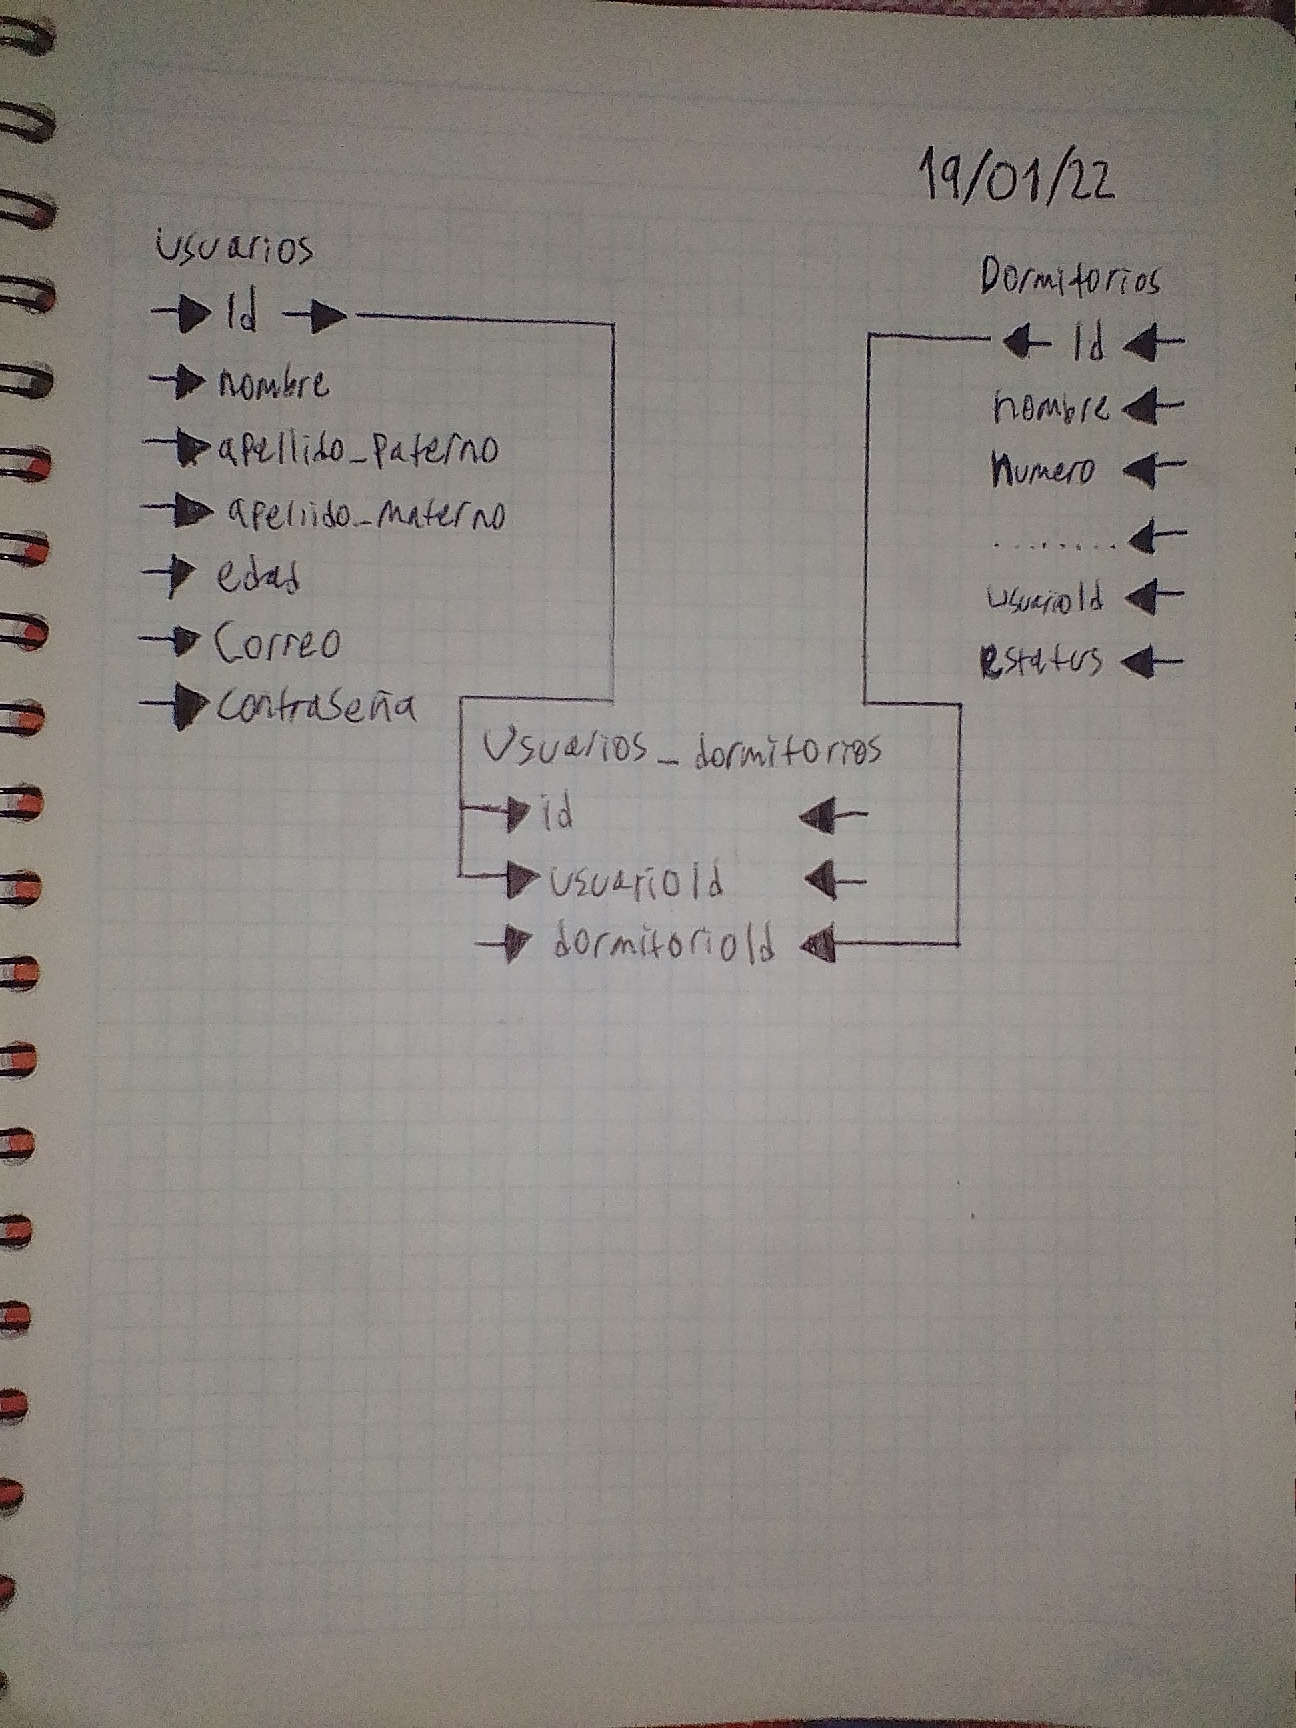 19/01/22
Usuarios
Id
nombre
apellido_paterno
apellido_materno
edad
Correo
contraseña
Dormitorios
Id
nombre
Numero
........
usuarioId
estatus
Usuarios_dormitorios
id
usuarioId
dormitorioId